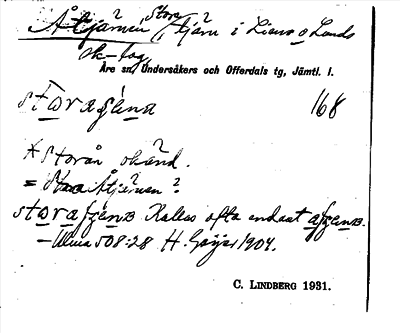 Åtjärnen, Stora, tjärn i Liens o Lunds
sk-lag,
Åre sn, Undersåkers och Offerdals tg, Jämtl. l.
168
* Storån okänd.
= Stora Åtjärnen?
Kallas ofta endast
– Ulma 508:28 H. Geijer 1904.
C. LINDBERG 1931.